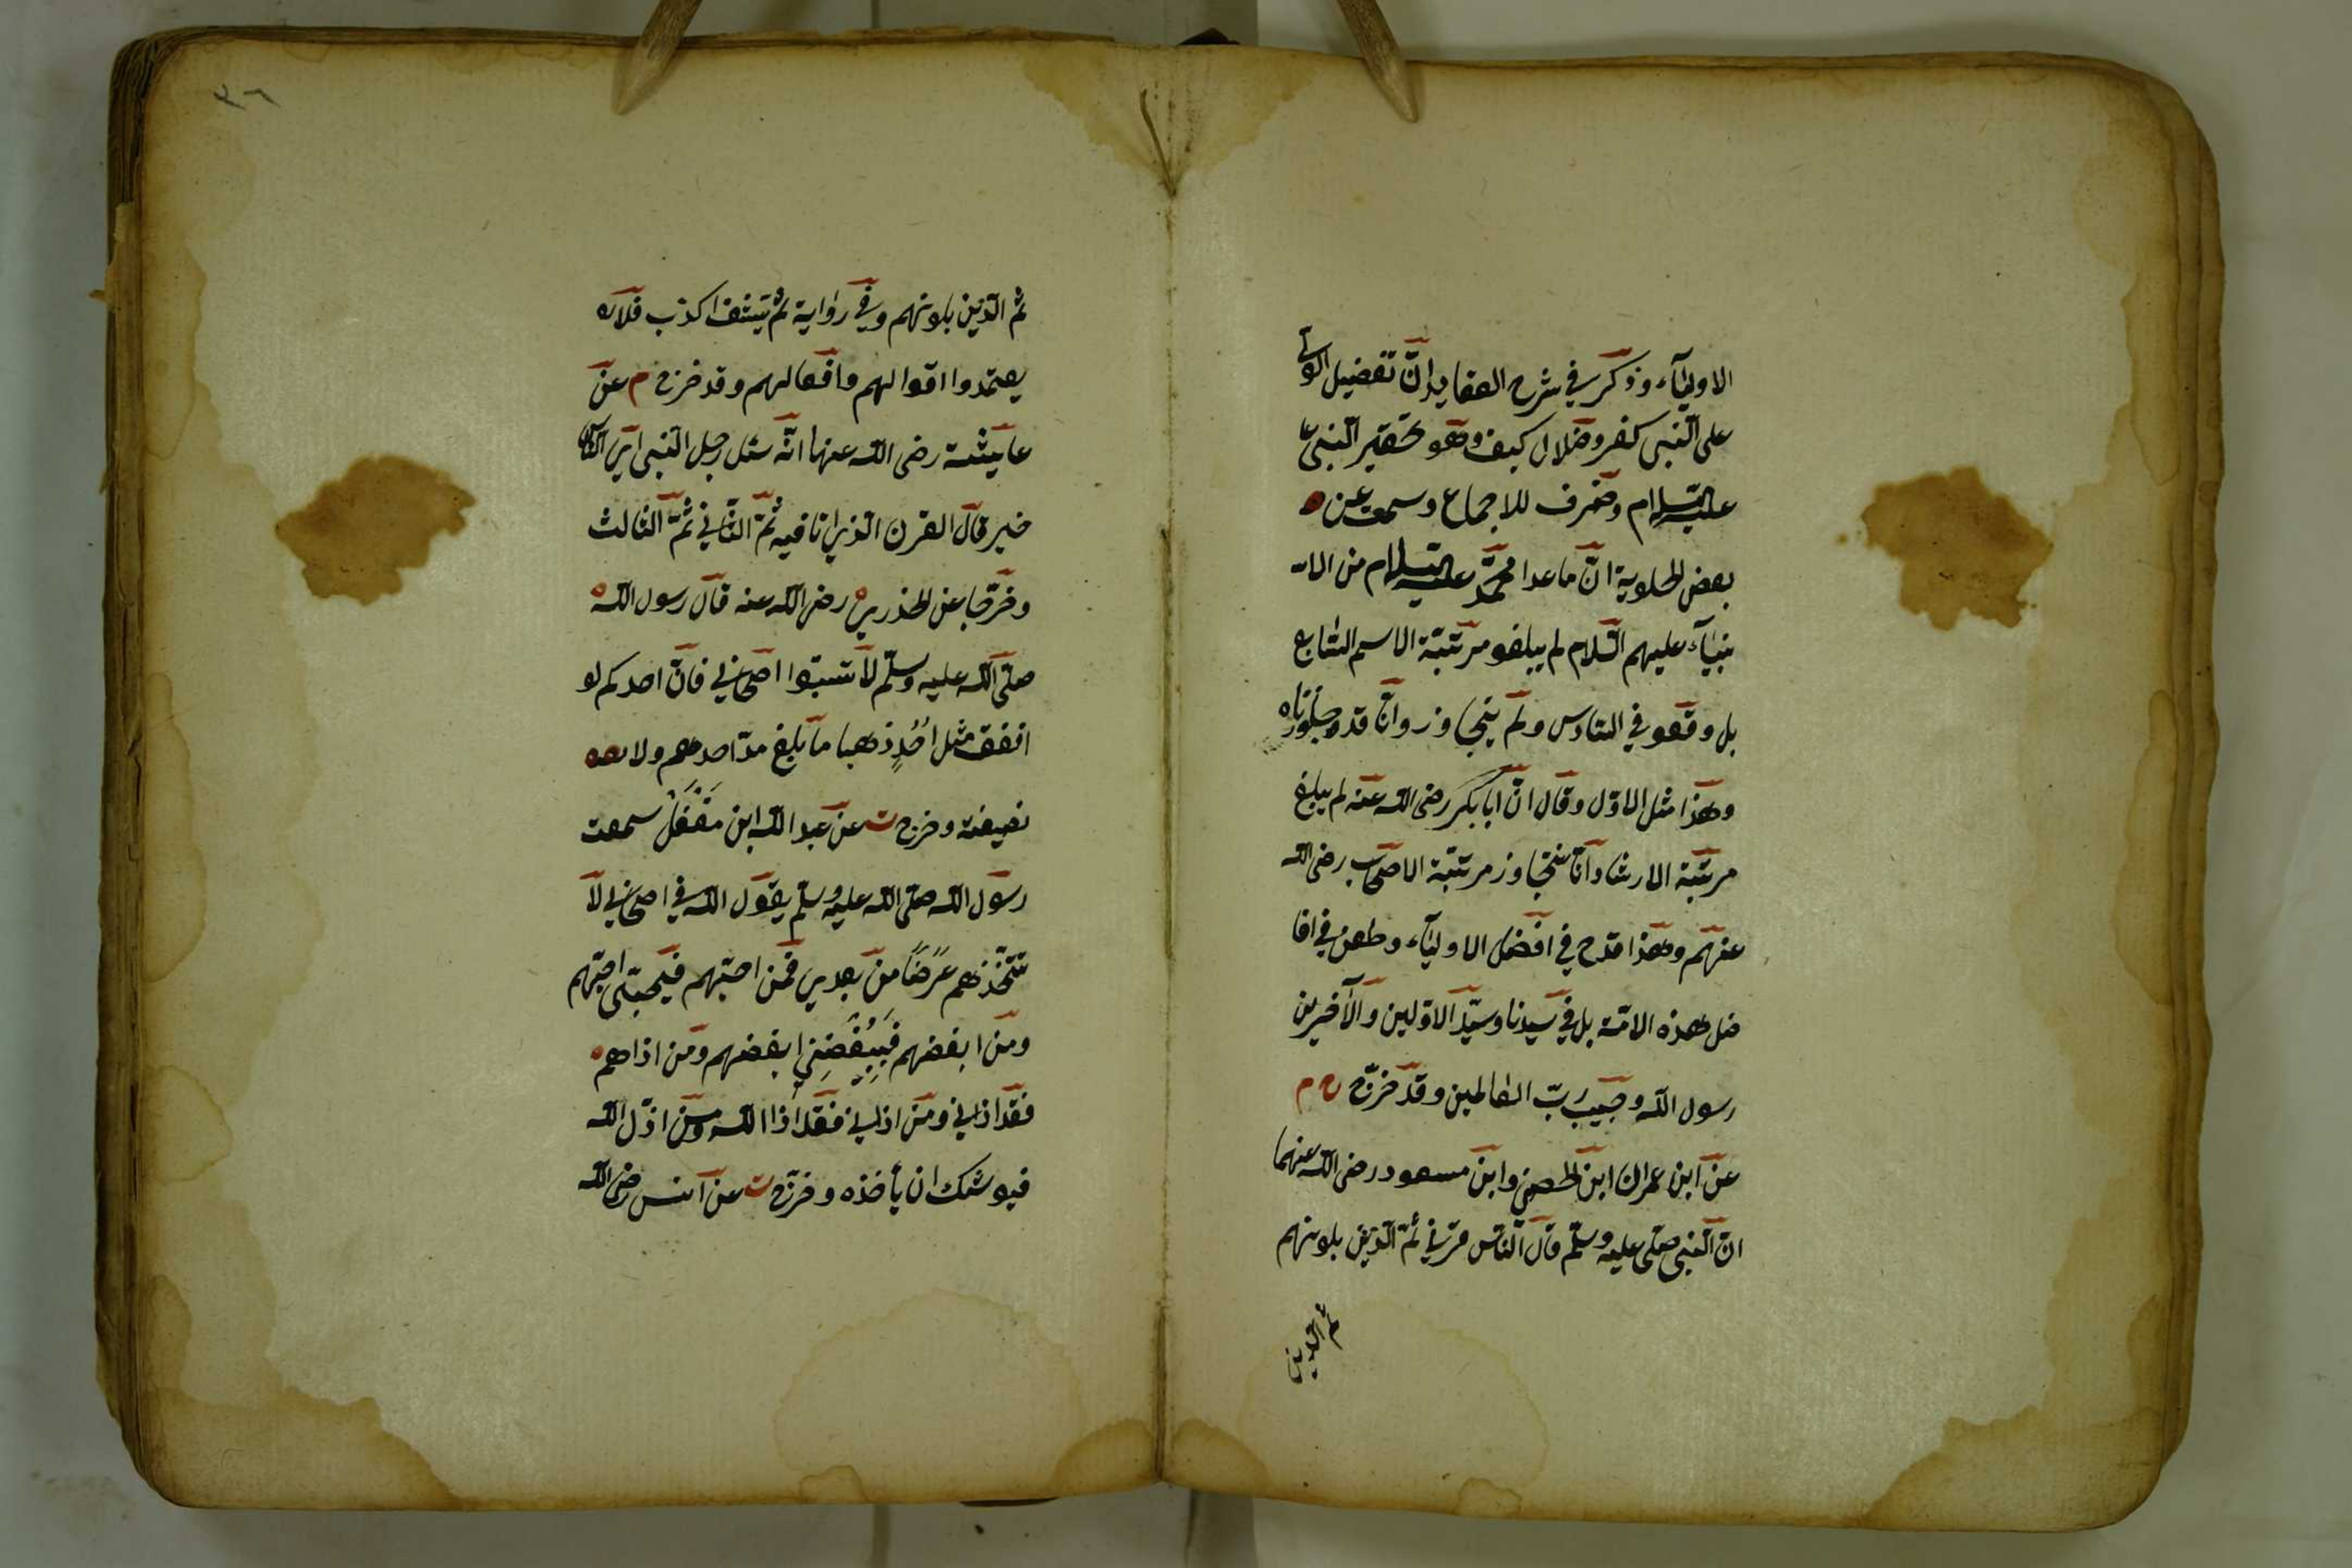 الاولياء وذكر في شرح العقايد ان تفضيل الولي
على النبى كفر وضلال كيف وهو تحقير النبى عا
عليه السلام وخرف للاجماع وسمعت عن
بعض الخلوية ان ماعدا محمّد عليه السلام من الا
نبياء عليهم السّلام لم يبلغو مرتبة الاسم السّابع
بل وقعو في السّادس ولم يتجاوز وانّا قد وجاوزناه
وهذا مثل الاوّل وقال انّ ابا بكر رضى الله عنه لم يبلغ
مرتبة الارشاد وانّا نتجاوز مرتبة الاصحاب رضى الله
عنهم وهذا قدح في افضل الاولياء وطعن في افا
ضل هذه الامّة بل في سيّدنا وسيّد الاوّلين والآخرين
رسول الله وحبيب ربّ العالمين وقد خرّج خ م
عن ابن عمران ابن الحصين وابن مسعود رضى الله عنهما
انّ النّبى صلى عليه وسلّم قال النّاس قرني ثمّ الّذين يلونهم
ثم الّذين
٣٦
ثم الّذين يلونهم وفي رواية ثم يتفشا كذب فلا
يعتمدوا اقوالهم وافعالهم وقد خرج م عن
عايشة رضى الله عنها انّه سئل رجل النبى اي النّاس
خير قال القرن الذي انا فيه ثمّ الثّاني ثمّ الثالث
وخرّجا عن الخذري رضى الله عنه قال رسول الله
صلّى الله عليه وسلّم لا تسبّوا اصحابي فانّ احدكم لو
انفق مثل اُحُدٍ ذهبا ما بلغ مدّ احدهم ولا
نصيفه وخرج ت عن عبد الله ابن مغَفَّلْ سمعت
رسول الله صلّى الله عليه وسلّم يقول الله في اصحابي لا
تتّخذهم عَرَضًا من بعدي فمن احبّهم فيحبّنى احبّهم
ومن ابغضهم فَبِبُغْضِنِي ابغضهم ومن اذاهم
فقد اذاني ومن اذاني فقد اذا الله ومن اذل الله
فيوشك ان يأخذه وخرّج ت عن انس رضى الله